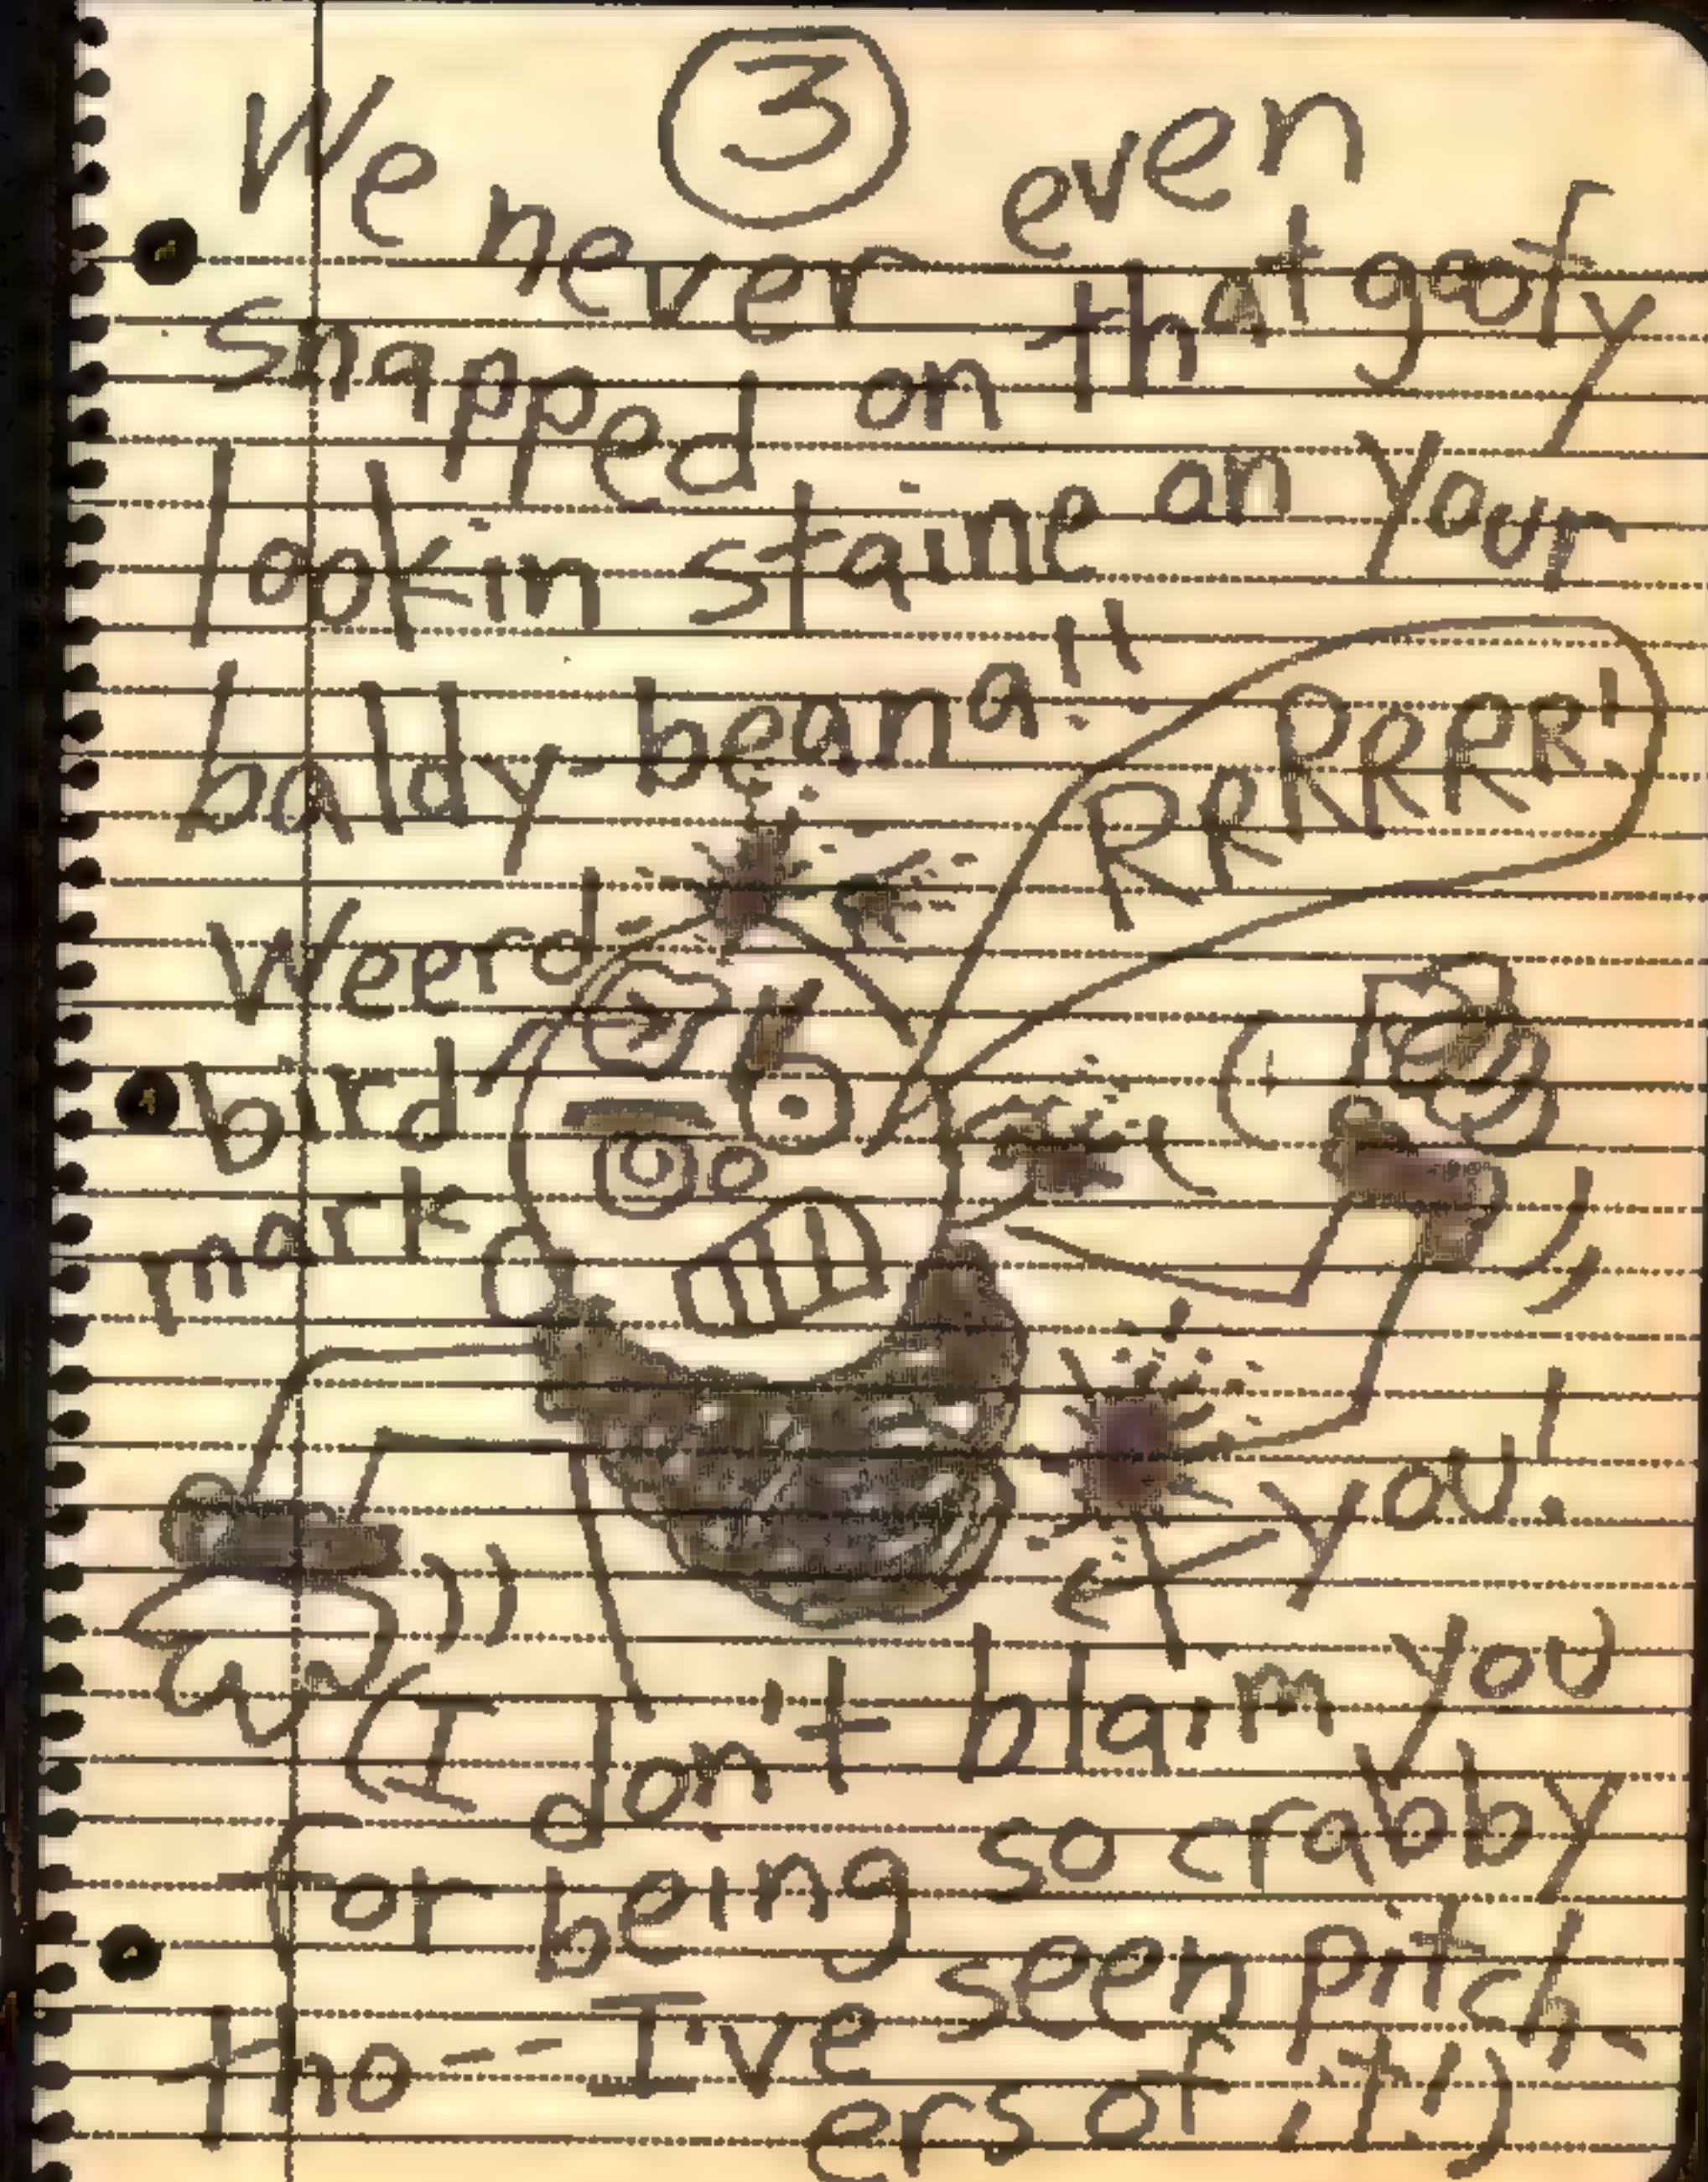 3
We never even
snapped on that goofy
lookin staine on your
baldy-beana!!
RRRRRR!
Weerd
bird
mark
you!
(I don't blaim you
for being so crabby
tho-- I've seen pitch-
ers of it!)